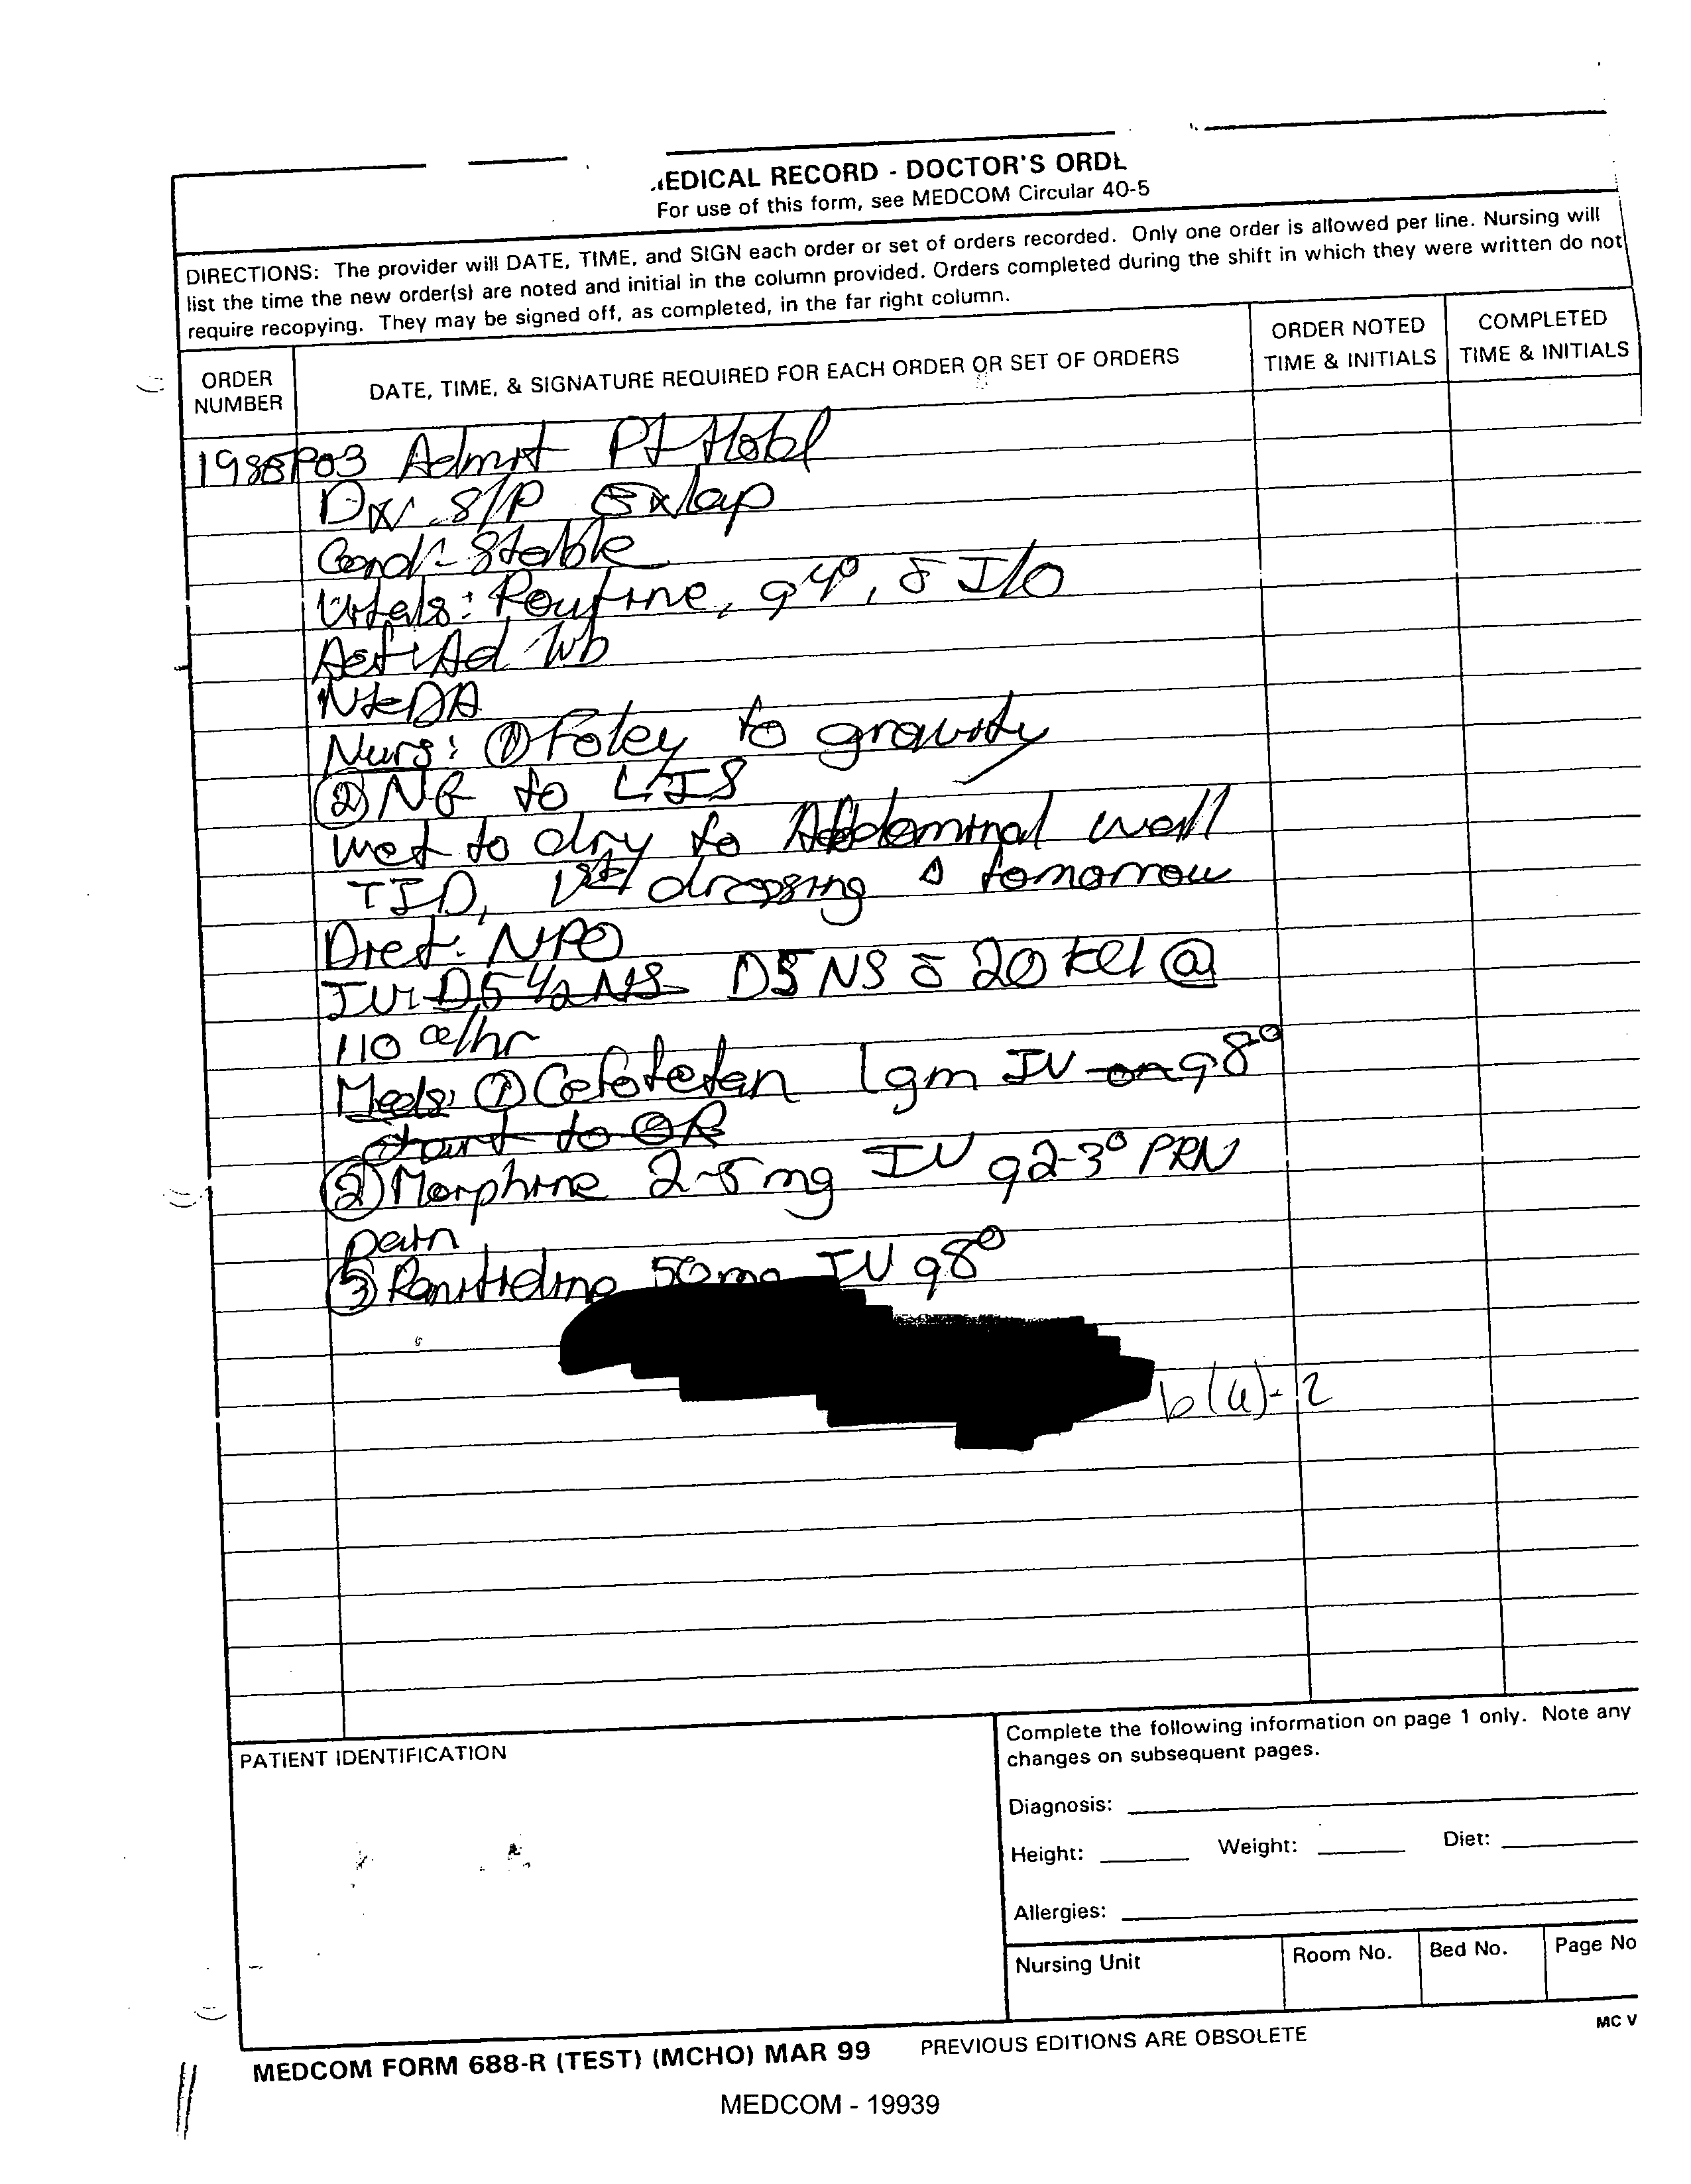 EDICAL RECORD - DOCTOR'S ORD
For use of this form, see MEDCOM Circular 40-5
DIRECTIONS: The provider will DATE, TIME, and SIGN each order or set of orders recorded. Only one order is allowed per line. Nursing will
list the time the new order(s) are noted and initial in the column provided. Orders completed during the shift in which they were written do not
require recopying. They may be signed off, as completed, in the far right column.
ORDER NUMBER
DATE, TIME, & SIGNATURE REQUIRED FOR EACH ORDER OR SET OF ORDERS
ORDER NOTED TIME & INITIALS
COMPLETED TIME & INITIALS
03 Admit
Dx S/P Exlap
Cond: Stable
Vitals: Routine, q4°, c̄ I/O
Act: Ad lib
NKDA
Nurs: ① Foley to gravity
② NG to LIS
wet to dry to Abdominal wall
TID, 1st dressing Δ tomorrow
Diet: NPO
IV: D5 1/2 NS D5 NS c̄ 20 kcl @
110 cc/hr
Meds: ① Cefotetan 1gm IV on q8°
start to OR
② Morphine 2-5 mg IV q2-3° PRN
pain
③ Ranitidine 50mg IV q8°
b(6)-2
PATIENT IDENTIFICATION
Complete the following information on page 1 only. Note any
changes on subsequent pages.
Diagnosis:
Height: Weight: Diet:
Allergies:
Nursing Unit Room No. Bed No. Page No
MC V
MEDCOM FORM 688-R (TEST) (MCHO) MAR 99 PREVIOUS EDITIONS ARE OBSOLETE
MEDCOM - 19939